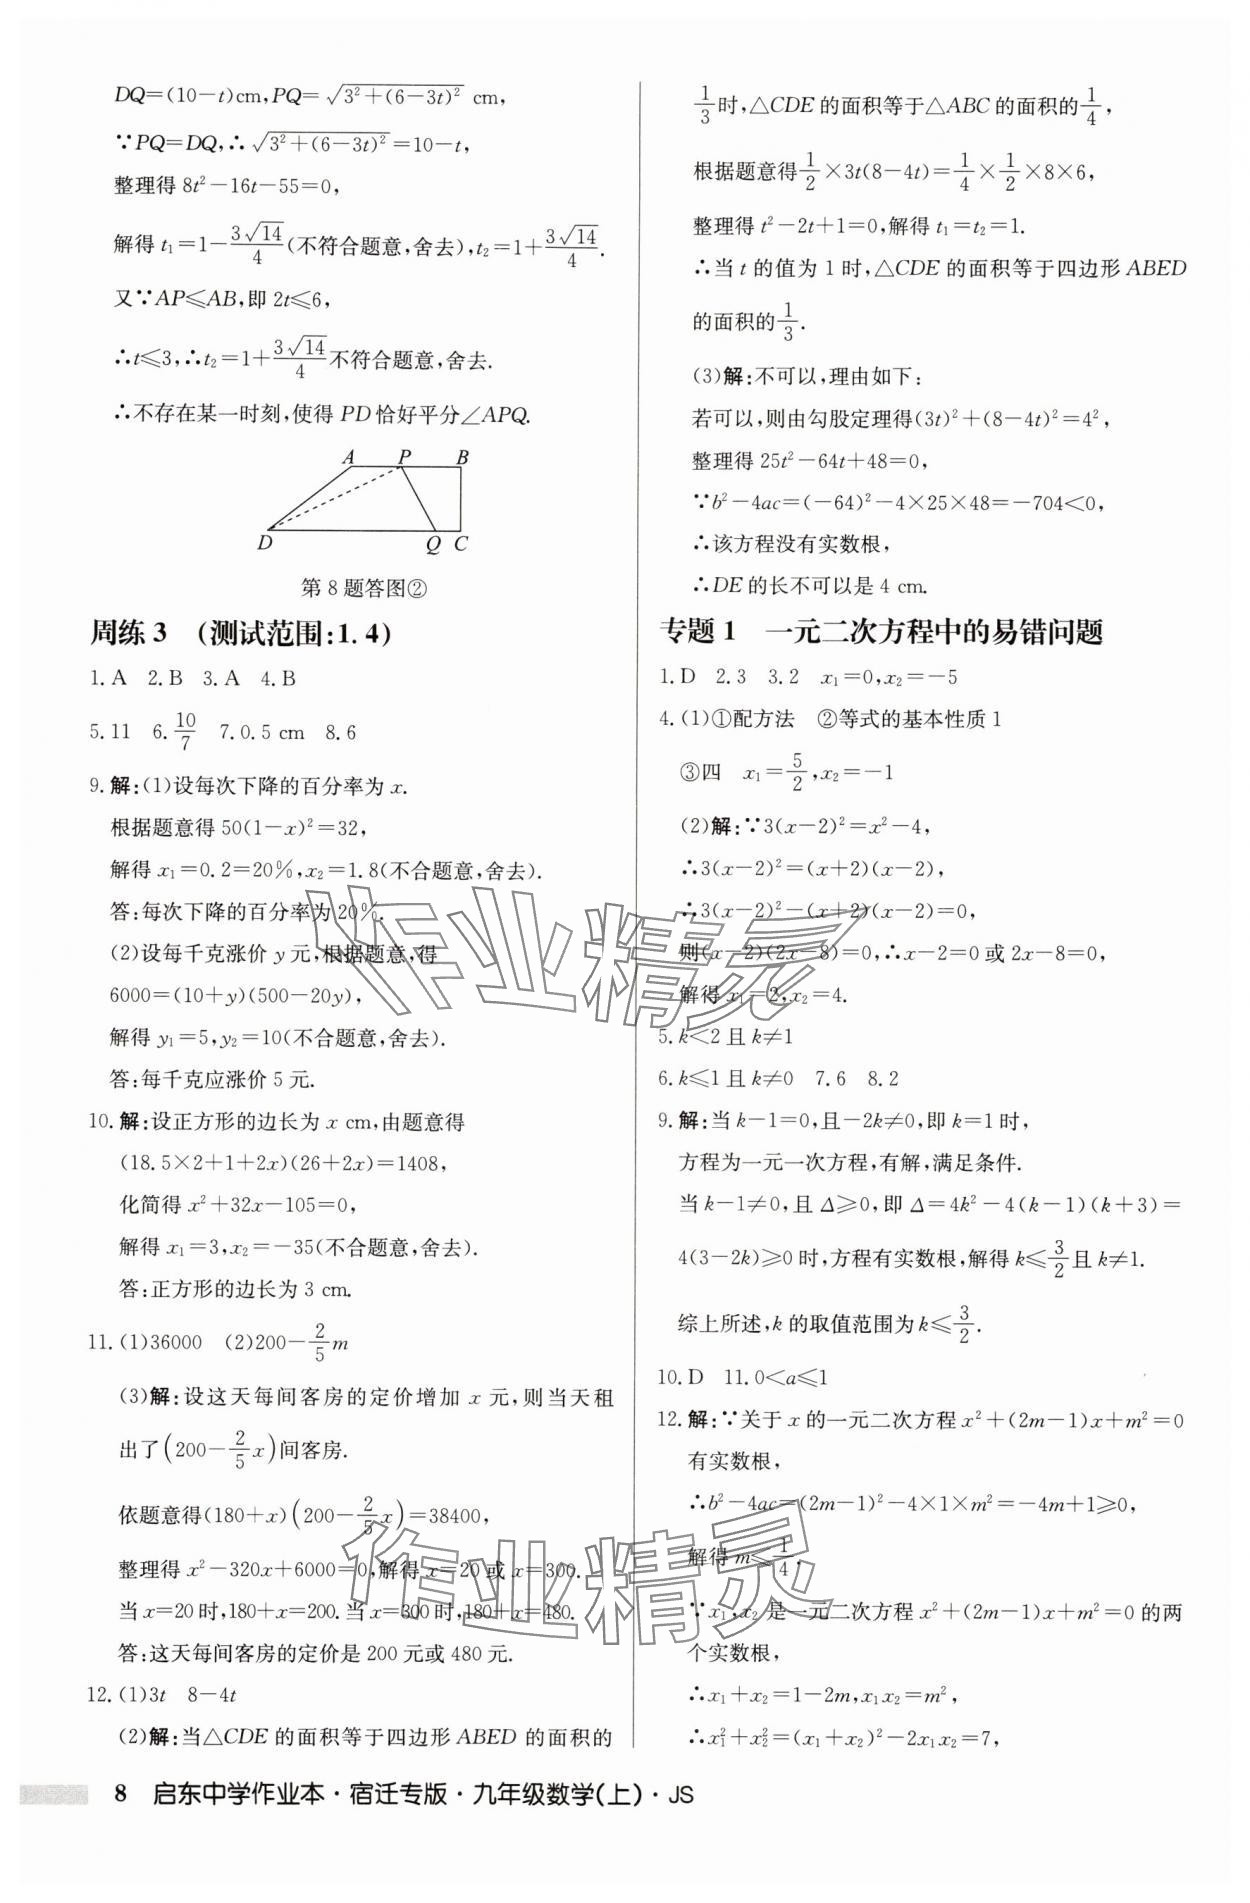 DQ=(10-t)cm,PQ=√(3²+(6-3t)²) cm,
∵PQ=DQ,∴√(3²+(6-3t)²)=10-t,
整理得 8t²-16t-55=0,
解得 t₁=1-3√14/4(不符合题意,舍去),t₂=1+3√14/4.
又∵AP≤AB,即 2t≤6,
∴t≤3,∴t₂=1+3√14/4不符合题意,舍去.
∴不存在某一时刻,使得 PD 恰好平分∠APQ.
A P B
D Q C
第 8 题答图②
周练 3 (测试范围:1.4)
1.A 2.B 3.A 4.B
5.11 6.10/7 7.0.5 cm 8.6
9.解:(1)设每次下降的百分率为 x.
根据题意得 50(1-x)²=32,
解得 x₁=0.2=20%,x₂=1.8(不合题意,舍去).
答:每次下降的百分率为 20%.
(2)设每千克涨价 y 元,根据题意,得
6000=(10+y)(500-20y),
解得 y₁=5,y₂=10(不合题意,舍去).
答:每千克应涨价 5 元.
10.解:设正方形的边长为 x cm,由题意得
(18.5×2+1+2x)(26+2x)=1408,
化简得 x²+32x-105=0,
解得 x₁=3,x₂=-35(不合题意,舍去).
答:正方形的边长为 3 cm.
11.(1)36000 (2)200-2/5m
(3)解:设这天每间客房的定价增加 x 元,则当天租
出了(200-2/5x)间客房.
依题意得(180+x)(200-2/5x)=38400,
整理得 x²-320x+6000=0,解得 x=20 或 x=300.
当 x=20 时,180+x=200.当 x=300 时,180+x=480.
答:这天每间客房的定价是 200 元或 480 元.
12.(1)3t 8-4t
(2)解:当△CDE 的面积等于四边形 ABED 的面积的
1/3时,△CDE 的面积等于△ABC 的面积的1/4,
根据题意得1/2×3t(8-4t)=1/4×1/2×8×6,
整理得 t²-2t+1=0,解得 t₁=t₂=1.
∴当 t 的值为 1 时,△CDE 的面积等于四边形 ABED
的面积的1/3.
(3)解:不可以,理由如下:
若可以,则由勾股定理得(3t)²+(8-4t)²=4²,
整理得 25t²-64t+48=0,
∵b²-4ac=(-64)²-4×25×48=-704<0,
∴该方程没有实数根,
∴DE 的长不可以是 4 cm.
专题 1 一元二次方程中的易错问题
1.D 2.3 3.2 x₁=0,x₂=-5
4.(1)①配方法 ②等式的基本性质 1
③四 x₁=5/2,x₂=-1
(2)解:∵3(x-2)²=x²-4,
∴3(x-2)²=(x+2)(x-2),
∴3(x-2)²-(x+2)(x-2)=0,
则(x-2)(2x-8)=0,∴x-2=0 或 2x-8=0,
解得 x₁=2,x₂=4.
5.k<2 且 k≠1
6.k≤1 且 k≠0 7.6 8.2
9.解:当 k-1=0,且-2k≠0,即 k=1 时,
方程为一元一次方程,有解,满足条件.
当 k-1≠0,且 Δ≥0,即 Δ=4k²-4(k-1)(k+3)=
4(3-2k)≥0 时,方程有实数根,解得 k≤3/2且 k≠1.
综上所述,k 的取值范围为 k≤3/2.
10.D 11.0<a≤1
12.解:∵关于 x 的一元二次方程 x²+(2m-1)x+m²=0
有实数根,
∴b²-4ac=(2m-1)²-4×1×m²=-4m+1≥0,
解得 m≤1/4,
∵x₁,x₂ 是一元二次方程 x²+(2m-1)x+m²=0 的两
个实数根,
∴x₁+x₂=1-2m,x₁x₂=m²,
∴x₁²+x₂²=(x₁+x₂)²-2x₁x₂=7,
作业精灵
作业精灵
8 启东中学作业本·宿迁专版·九年级数学(上)·JS